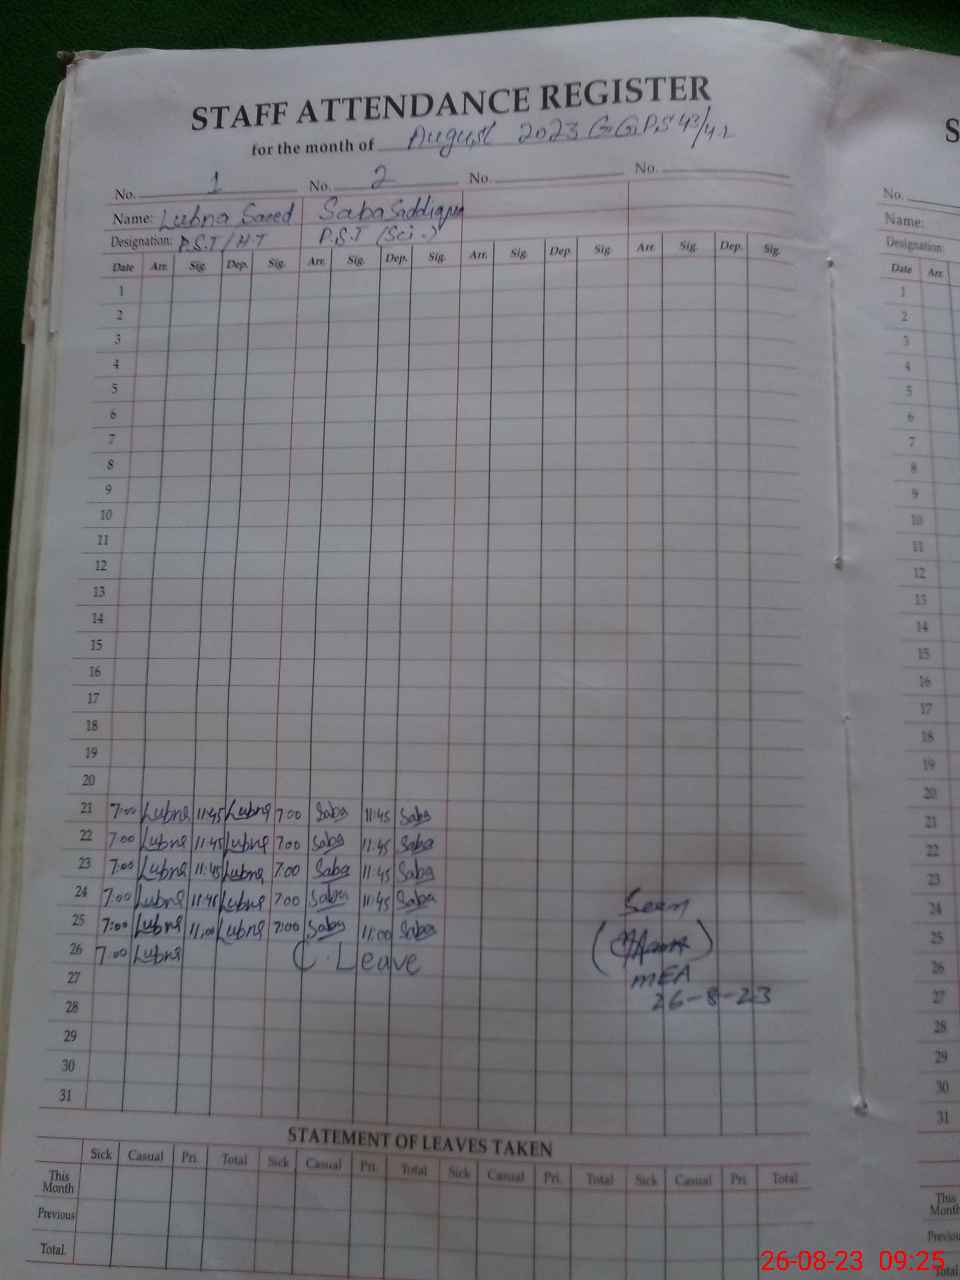 STAFF ATTENDANCE REGISTER
for the month of August 2023 G.G.P.S 43/4.L
No. 1 No. 2 No. No.
Name: Lubna Saeed Saba Saddiqua
Designation: P.S.T/H.T P.S.T (Sci.)
Date Arr. Sig. Dep. Sig. Arr. Sig. Dep. Sig. Arr. Sig. Dep. Sig. Arr. Sig. Dep. Sig.
1
2
3
4
5
6
7
8
9
10
11
12
13
14
15
16
17
18
19
20
21 7:00 Lubna 11:45 Lubna 7:00 Saba 11:45 Saba
22 7:00 Lubna 11:45 Lubna 7:00 Saba 11:45 Saba
23 7:00 Lubna 11:45 Lubna 7:00 Saba 11:45 Saba
24 7:00 Lubna 11:45 Lubna 7:00 Saba 11:45 Saba
25 7:00 Lubna 11:00 Lubna 7:00 Saba 11:00 Saba
26 7:00 Lubna C. Leave
27
28
29
30
31
Seen
MEA
26-8-23
STATEMENT OF LEAVES TAKEN
Sick Casual Pri. Total Sick Casual Pri. Total Sick Casual Pri. Total Sick Casual Pri. Total
This Month
Previous
Total.
S
No.
Name:
Designation:
Date Arr.
1
2
3
4
5
6
7
8
9
10
11
12
13
14
15
16
17
18
19
20
21
22
23
24
25
26
27
28
29
30
31
This
Month
Previous
Total
26-08-23 09:25